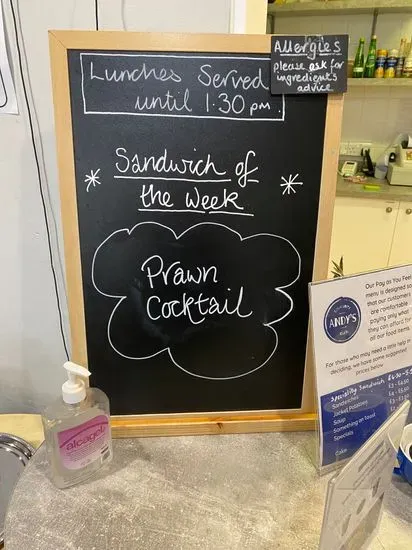 Allergies
please ask for
ingredient's
advice
Lunches Served
until 1.30 pm.
Sandwich of
the week
Prawn
Cocktail
alcogel
ANDY'S
Our Pay as You Feel
menu is designed so
that our customers
are comfortable
paying only what
they can afford for
all our food items
For those who may need a little help in
deciding, we have some suggested
prices below
Speciality Sandwich
Sandwiches
Jacket potatoes
Soup
Something on toast
Specials
Cake